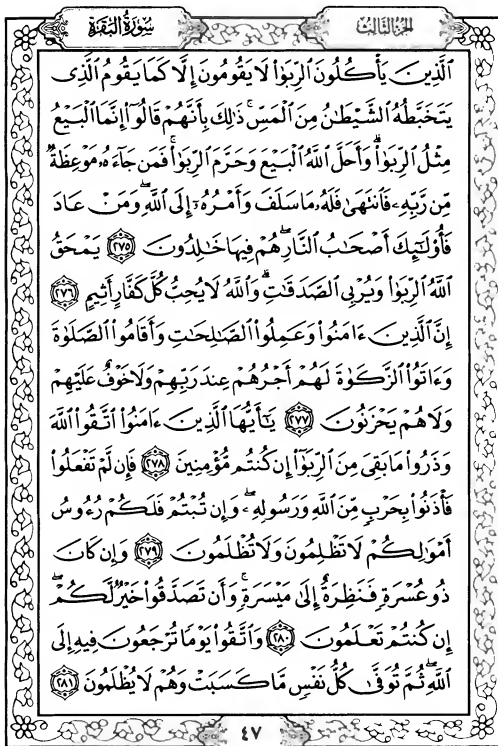 سُورَةُ البَقَرَةِ
الجُزءُ الثَّالِثُ
الَّذِينَ يَأْكُلُونَ الرِّبَوٰا۟ لَا يَقُومُونَ إِلَّا كَمَا يَقُومُ الَّذِى
يَتَخَبَّطُهُ الشَّيْطَٰنُ مِنَ الْمَسِّ ۚ ذَٰلِكَ بِأَنَّهُمْ قَالُوٓا۟ إِنَّمَا الْبَيْعُ
مِثْلُ الرِّبَوٰا۟ ۗ وَأَحَلَّ اللَّهُ الْبَيْعَ وَحَرَّمَ الرِّبَوٰا۟ ۚ فَمَن جَآءَهُۥ مَوْعِظَةٌ
مِّن رَّبِّهِۦ فَٱنتَهَىٰ فَلَهُۥ مَا سَلَفَ وَأَمْرُهُۥٓ إِلَى اللَّهِ ۖ وَمَنْ عَادَ
فَأُو۟لَٰٓئِكَ أَصْحَٰبُ النَّارِ ۖ هُمْ فِيهَا خَٰلِدُونَ ٢٧٥ يَمْحَقُ
اللَّهُ الرِّبَوٰا۟ وَيُرْبِى الصَّدَقَٰتِ ۗ وَاللَّهُ لَا يُحِبُّ كُلَّ كَفَّارٍ أَثِيمٍ ٢٧٦
إِنَّ الَّذِينَ ءَامَنُوا۟ وَعَمِلُوا۟ الصَّٰلِحَٰتِ وَأَقَامُوا۟ الصَّلَوٰةَ
وَءَاتَوُا۟ الزَّكَوٰةَ لَهُمْ أَجْرُهُمْ عِندَ رَبِّهِمْ وَلَا خَوْفٌ عَلَيْهِمْ
وَلَا هُمْ يَحْزَنُونَ ٢٧٧ يَٰٓأَيُّهَا الَّذِينَ ءَامَنُوا۟ اتَّقُوا۟ اللَّهَ
وَذَرُوا۟ مَا بَقِىَ مِنَ الرِّبَوٰٓا۟ إِن كُنتُم مُّؤْمِنِينَ ٢٧٨ فَإِن لَّمْ تَفْعَلُوا۟
فَأْذَنُوا۟ بِحَرْبٍ مِّنَ اللَّهِ وَرَسُولِهِۦ ۖ وَإِن تُبْتُمْ فَلَكُمْ رُءُوسُ
أَمْوَٰلِكُمْ لَا تَظْلِمُونَ وَلَا تُظْلَمُونَ ٢٧٩ وَإِن كَانَ
ذُو عُسْرَةٍ فَنَظِرَةٌ إِلَىٰ مَيْسَرَةٍ ۚ وَأَن تَصَدَّقُوا۟ خَيْرٌ لَّكُمْ ۖ
إِن كُنتُمْ تَعْلَمُونَ ٢٨٠ وَٱتَّقُوا۟ يَوْمًا تُرْجَعُونَ فِيهِ إِلَى
اللَّهِ ۖ ثُمَّ تُوَفَّىٰ كُلُّ نَفْسٍ مَّا كَسَبَتْ وَهُمْ لَا يُظْلَمُونَ ٢٨١
٤٧